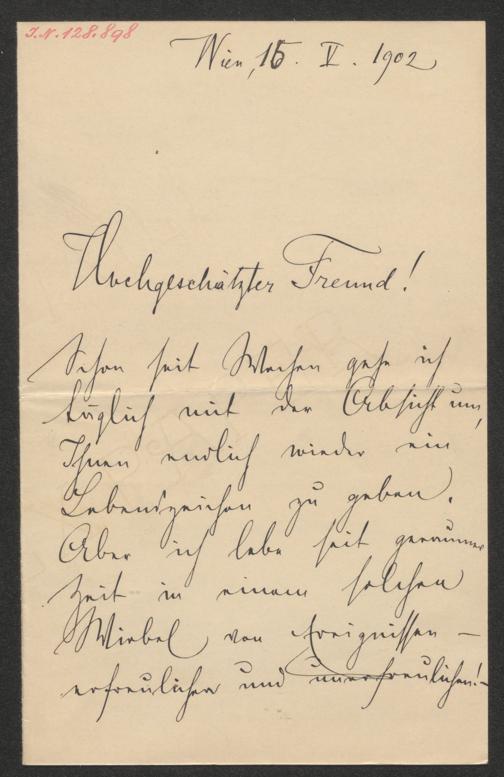 I.N. 128.898
Wien, 15. V. 1902
Hochgeschätzter Freund!
Schon seit Wochen gehe ich
täglich mit der Absicht um,
Ihnen endlich wieder ein
Lebenszeichen zu geben.
Aber ich lebe seit geraumer
Zeit in einem solchen
Wirbel von Ereignissen –
erfreulichen und unerfreulichen! –